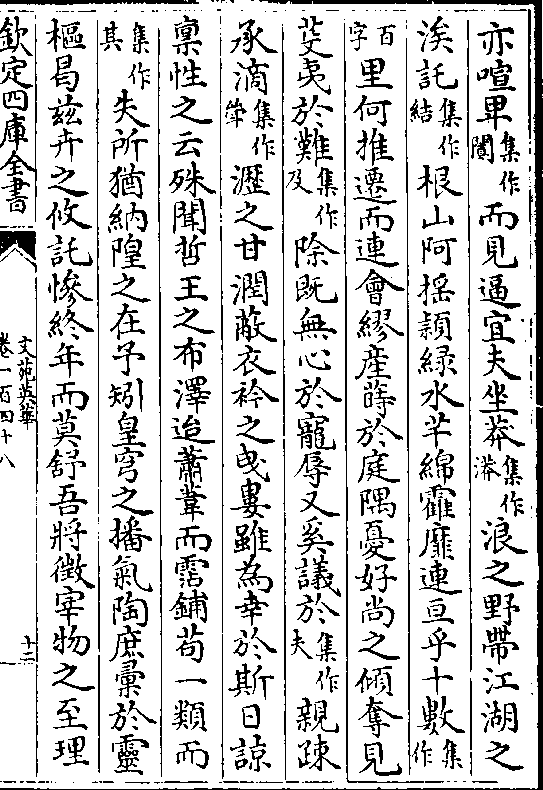 亦喧卑集作闤而見逼宜夫坐莽集作漭浪之野帶江湖之
涘託集作結根山阿揺穎緑水芊綿霍靡連亘乎十數集作
百字里何推遷而連會繆産蒔於庭隅憂好尚之傾奪見
芟夷於難集作及除既無心於寵辱又奚議於集作夫親疎
承滴集作䔖瀝之甘潤敝衣衿之曵婁雖為幸於斯日諒
稟性之云殊聞哲王之布澤迨蕭葦而霑鋪苟一類而
集作其失所猶納隍之在予矧皇穹之播氣陶庶彚於靈
樞曷兹卉之攸託慘終年而莫舒吾將徴宰物之至理
欽定四庫全書
文苑英華
卷一百四十八
十二